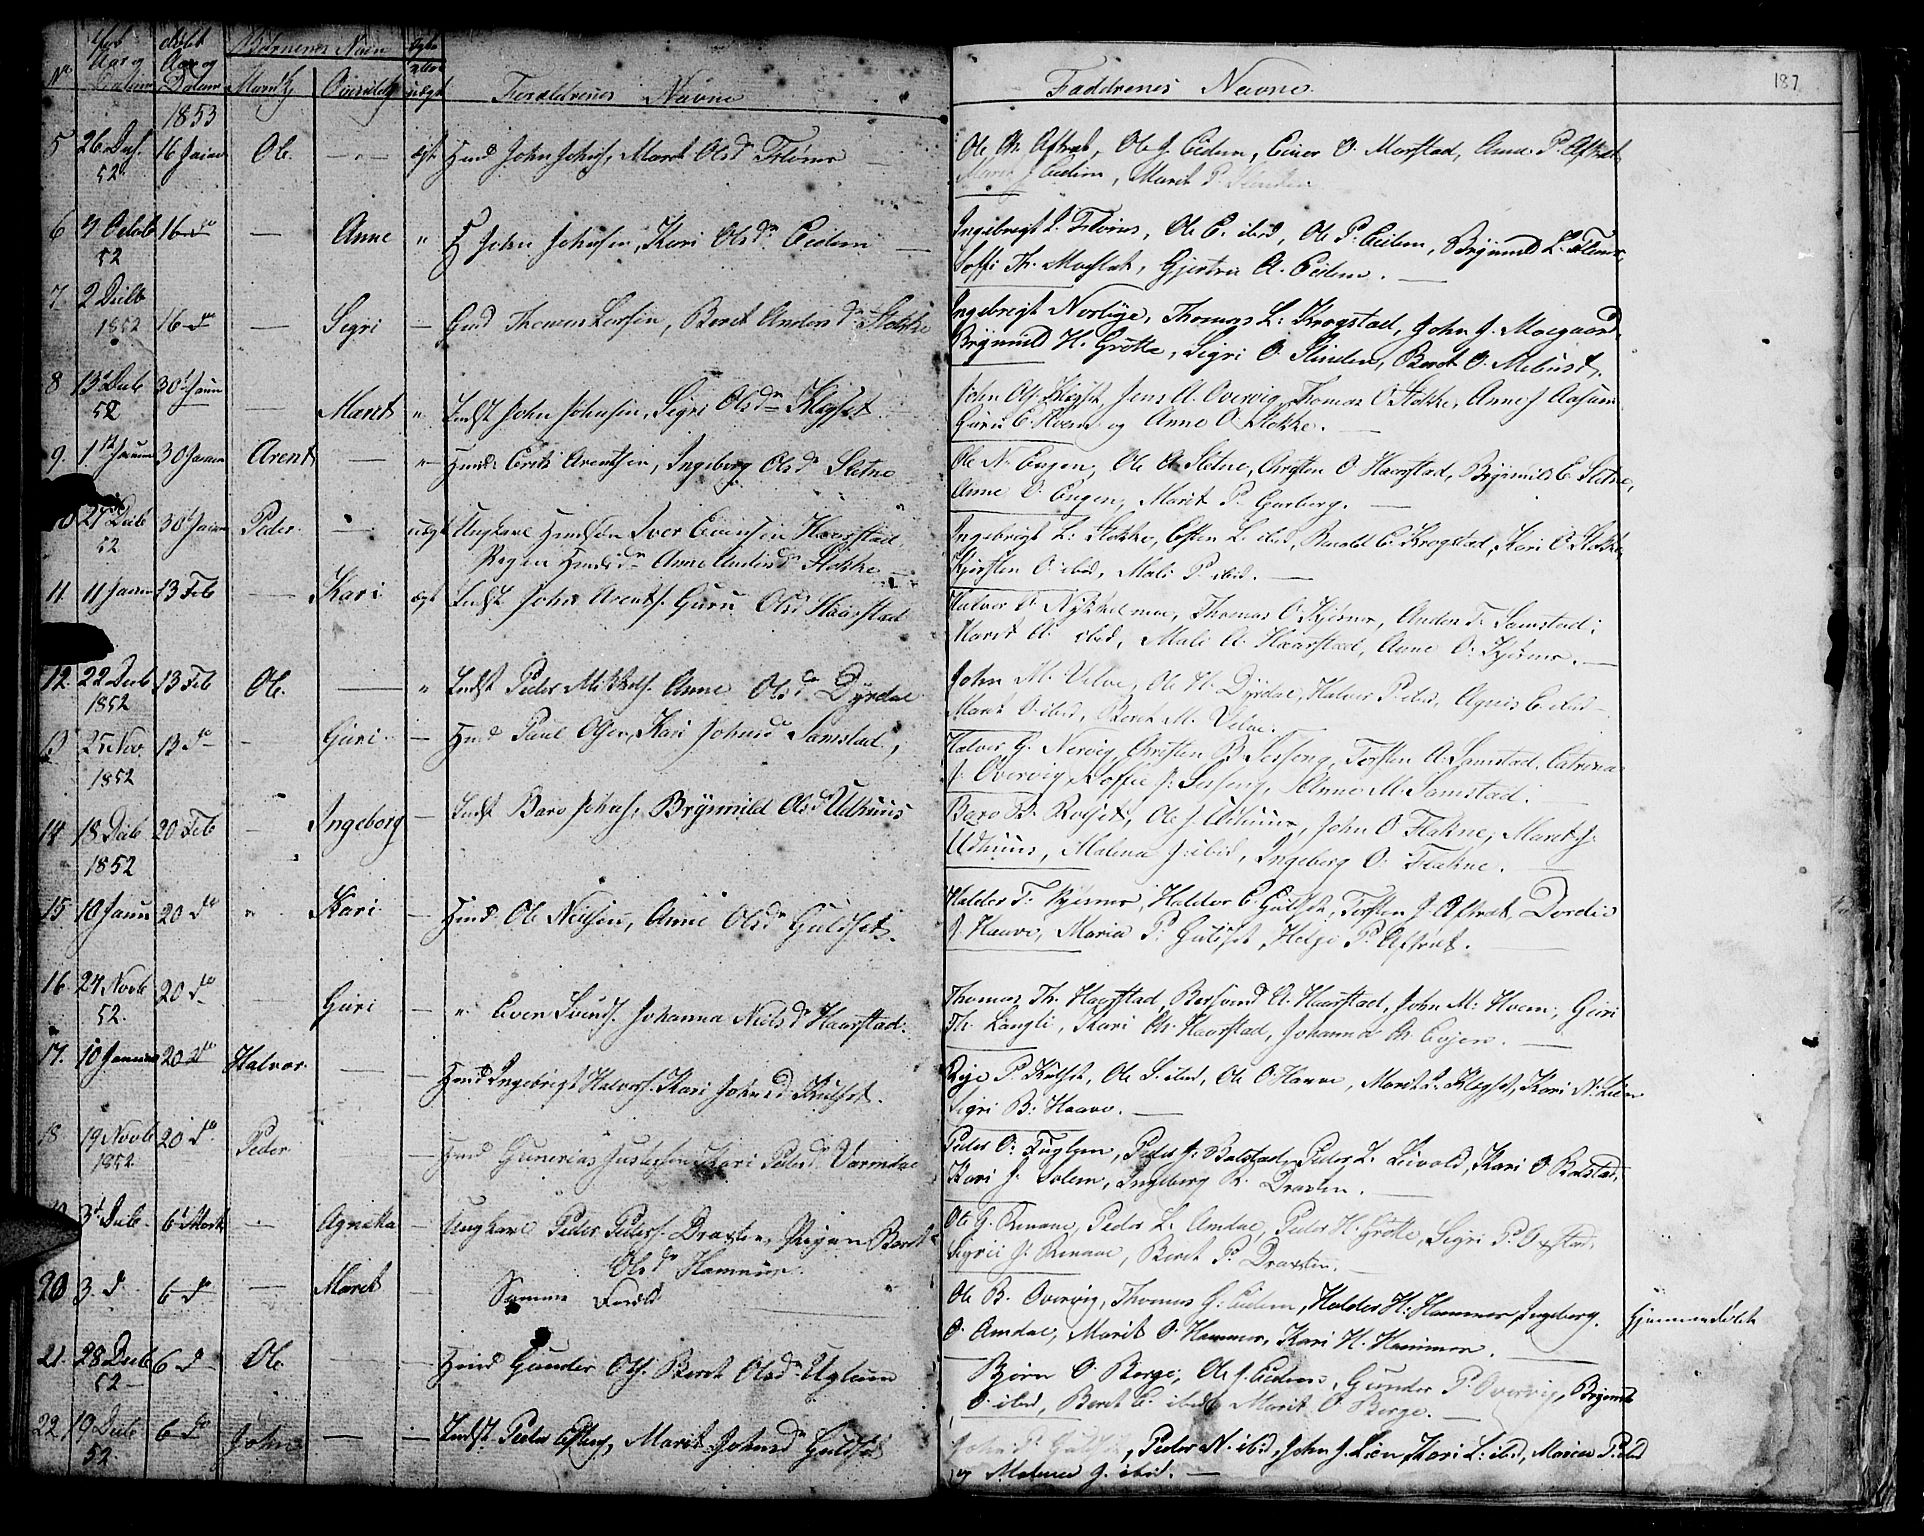 No
Aar og Datum
døbt Aar og Datum
Børnenes Navn
Mandk
Qvindk
Forældrenes Navne
Faddrenes Navne.
187
1853
5 26 Dec. 52 16 Janu Ole — ægt Hmd John Johns. Maret Olsd Flønes —
Ole Chr Aftret, Ole J. Eidem, Einer O. Morstad, Anne P. Aftret
Maret J Eidem, Marit P.
6 7 Octob 52 16 do — Anne " John Johnsen, Kari Olsdr Eidem —
Ingebrigt L. Flønes, Ole E. ibid, Ole P. Eidem, Brynnild L. Flønes,
Soffi Th. Mostat, Gjertru A. Eidem. —
7. 2 Decb 1852 16 do — Segri — Gmd Thomas Larsen, Beret Andersdr Stokke
Ingebrigt Norbye, Thomas L: Krogstad, John J. Moegaard,
Brynnild H. Grøtte, Sigri O. Slinden, Beret O. Mebust,
8 13d Decb 52 30t Janu — Maret " Indst John Johnsen, Segri Olsdr Klegset
John Ols. Klegset, Jens A. Overvig, Thomas O Stokke, Anne J Aasum
Guru E. Hoem og Anne O. Stokke. —
9. 1ste Januar 30 Januar Arent — " Hmd: Erik Arentsen, Ingeberg Olsdr Sletne
Ole N. Engen, Ole A. Sletne, Christen O Haarstad, Brynnild E. Sletne,
Anne O. Engen, Marit P. Garberg. —
10 27 Decb 52 30t Januar Peder — uægt Ungkarl Hmdsøn Iver Evensen Haarstad
Pigen Hmdsdr Anne Andersdr Stokke —
Ingebrigt L: Stokke, Esten L. ibid, Barold E. Krogstad, Kari O. Stokke
Kjersten O. ibid, Mali P. ibid. —
11. 11 Januar 13 Feb — Kari ægt Indst John Arents. Guru Olsd Haarstad
Halvor O. Nykkelmoe, Thomas O. Kjøsnes, Anders T. Samstad:
Marit A. ibid, Mali A. Haarstad, Anne O. Kjøsnes. —
12. 22 Decb 1852 13 Feb Ole. — " Indst Peder Mikkels. Anne Olsdr Dyrdae
John M. Velve, Ole H. Dyrdae, Halvor P. ibid, Agnis E. ibid —
Maret O. ibid, Beret M. Velve.
13 25 Nov. 1852 13 do — Guri — Hmd Paul Olsen, Kari Johnsd Samstad,
Halvor G. Nervig, Christen B. Sesseng, Torsten A. Samstad, Catrina
J. Overvig, Soffie J. Sesseng, Anne M. Samstad. —
14 18 Decb 1852 20 Feb — Ingeborg — Indst Baro Johns, Brynnild Olsdr Udhuus
Baro B. Rolset, Ole J. Udhuus, John O Flakne, Maret J.
Udhuus, Malena J. ibid, Ingeberg O. Flakne. —
15 10 Janu 20 do " Kari — Hmd. Ole Nielsen, Anne Olsdr Guldset.
Haldor T. Kjøsnes, Haldor E. Guldset, Torsten J. Aftret, Dordie
J. Haave, Maria P. Guldset, Helge P. Aftret. —
16. 24 Novb 52. 20 do — Guri — " Even Svends. Johanna Nielsdr Haarstad.
Thomas Th. Haarstad, Barsvend A. Haarstad, John M. Hoem, Guri
Th. Langli, Kari Chr. Haarstad, Johanna Chr. Eojen. —
17. 10 Januar 20 do Halvor — — Hmd Ingebrigt Halvors. Kari Johnsd Kulset.
Roje P. Kulset, Ole L. ibid, Ole O. Haave, Marit L. Klegset, Kari N. Lien
Sigri B. Haave. —
18 19 Novb 1852 20 do Peder — Hmd Gunerius Justesen, Kari Pedersdr Varmdae
Peder O: Fuglem, Peder J. Balstad, Peder L. Levold, Kari O Balstad,
Kari J. Solem, Ingeberg R. Draxten. —
3d Decb. 6d Marts — Agneta — Ungkarl Peder Peders. Draxten, Pigen Beret
Olsdr Hammer.
Ole J. Renaae, Peder L. Amdae, Peder H. Grøtte, Segri P. Oxstad,
Segrie J. Renaae, Beret P. Draxten. —
20 3 d. 6 d — Maret — Samme Foreld
Ole B. Overvig, Thomas G. Eidem, Haldor H: Hammer, Ingeberg. Hjemmedøbt
O. Amdae, Marit O. Hammer, Kari H. Hammer. —
21. 28 Decb 52 — 6 d — Ole — — Hmd Gunder Ols. Beret Olsdr Uglaam
Bjørn O. Berge, Ole J. Eidem, Gunder P. Overvig, Brynnild
O. ibid, Beret E. ibid, Marit O. Berge. —
22. 19 Decb 52. 6 do John — — Indst. Peder Estens, Marit Johnsdr Guldset
John P. Guldset, Peder N. ibid, John J. Lien, Kari L: ibid, Maria P. ibid
og Malena J. ibid. —